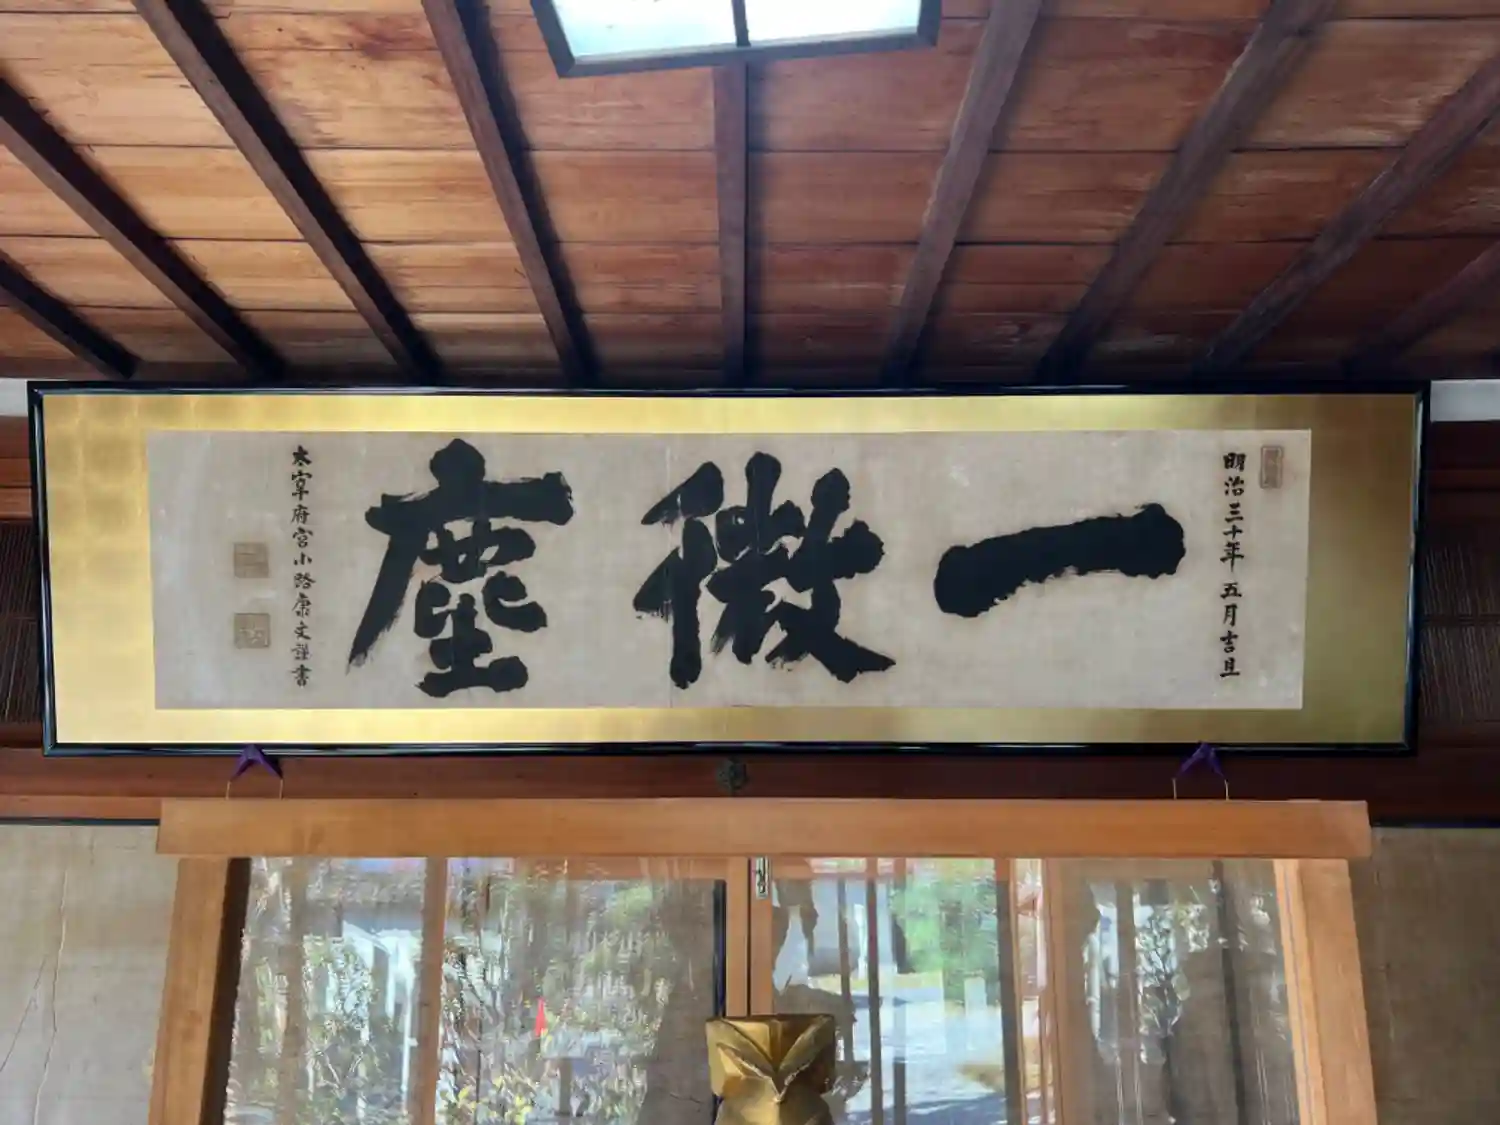 明治三十年 五月吉旦
一微塵
太宰府宮小路康文謹書